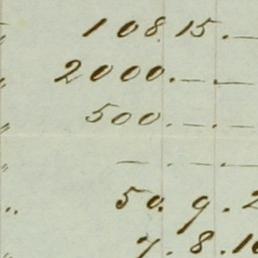 " 108.15.—
" 2000.—.—
" 500.—.—
" —.—.—
" 50.9.2
" 7.8.10